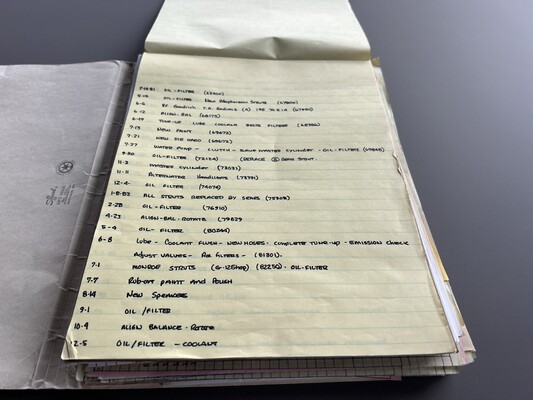 OIL-FILTER
OIL-FILTER New MacPherson Struts
6-6 B.F. Goodrich T.A. Radials (4)
6-12 ALIGN-BAL (68175)
6-19 TUNE-UP LUBE COOLANT BELTS FILTERS
7-13 NEW PAINT (69673)
7-21 NEW DIE HARD
7-27 WATER PUMP - CLUTCH - MASTER CYLINDER - OIL-FILTER
9-30 OIL-FILTER (72124) (REPLACE ② REAR STRUT
11-3 MASTER CYLINDER (73031)
11-11 ALTERNATOR HEADLIGHTS (73391)
12-4 OIL FILTER (74074)
1-8-82 ALL STRUTS REPLACED BY SEARS (75303)
2-28 OIL-FILTER (76910)
4-23 ALIGN-BAL-ROTATE (79029
5-4 OIL-FILTER (80244)
6-8 LUBE - COOLANT FLUSH - NEW HOSES - COMPLETE TUNE-UP - EMISSION CHECK
ADJUST VALVES - AIR FILTERS - (81301).
7-1 MONROE STRUTS (82250) - OIL-FILTER
7-7 RUB-OUT PAINT AND POLISH
8-14 NEW SPEAKERS
9-1 OIL/FILTER
10-9 ALIGN BALANCE-ROTATE
12-5 OIL/FILTER - COOLANT